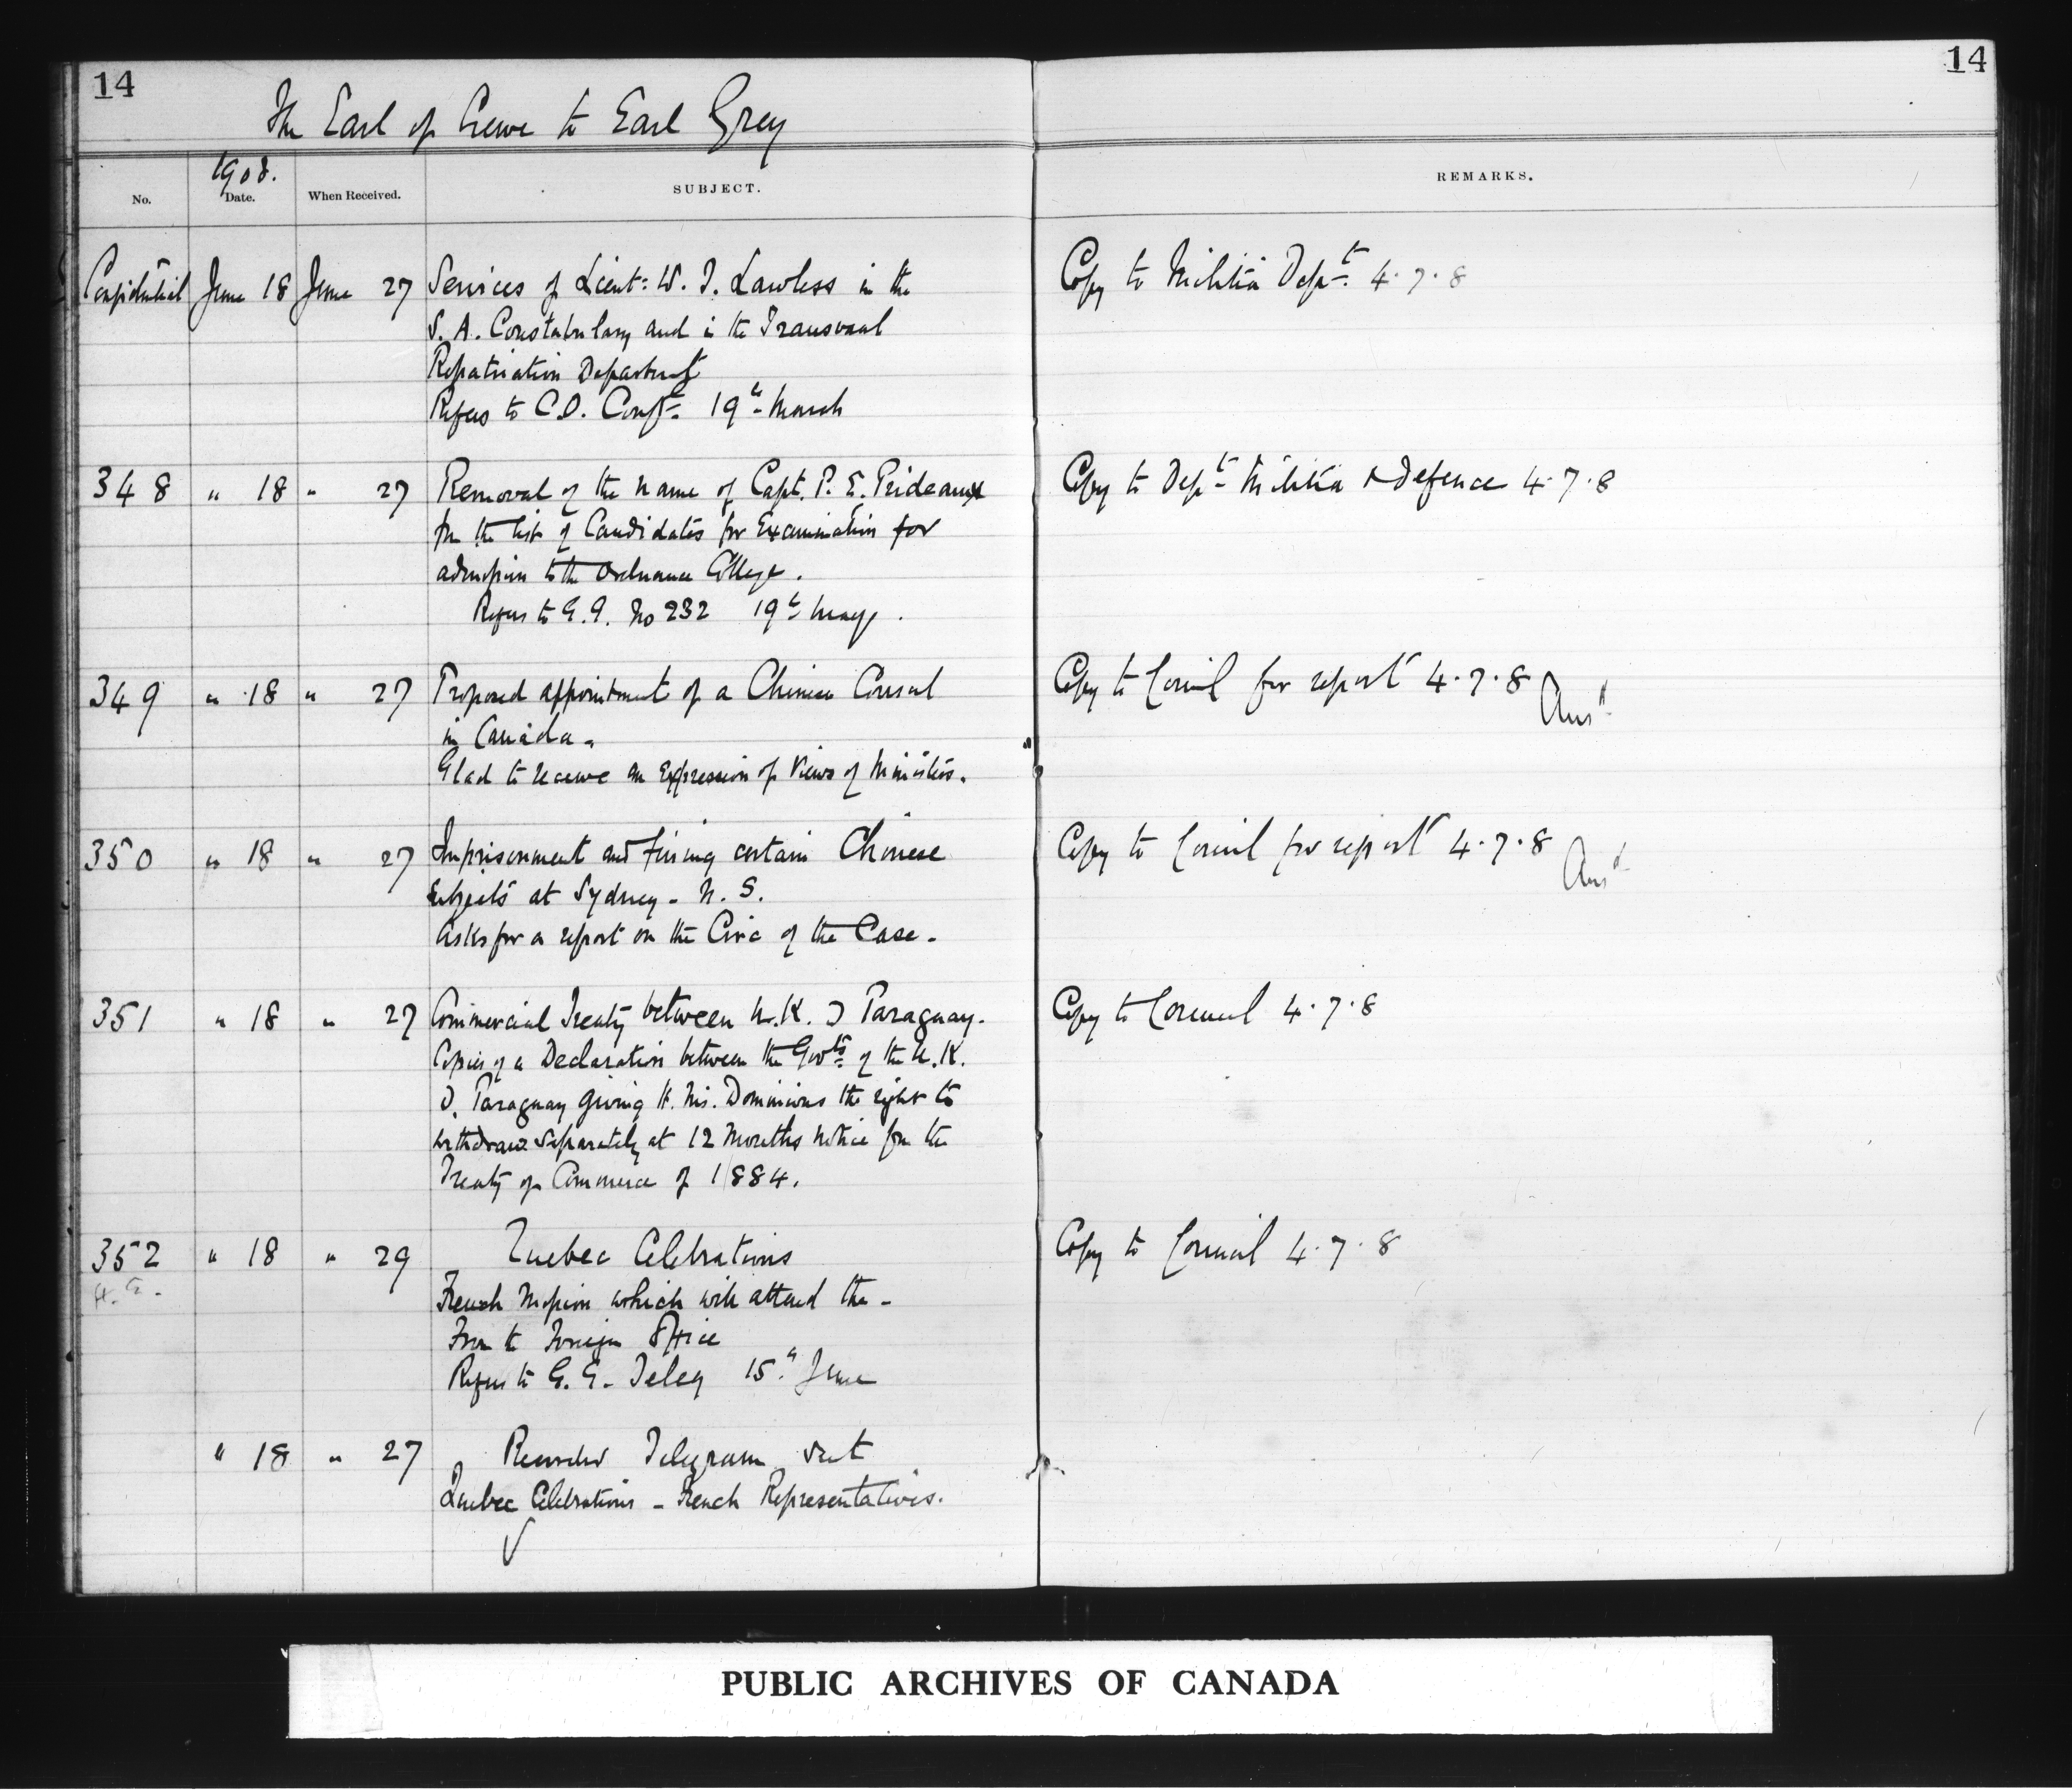 14
14
The Earl of Crewe to Earl Grey
1908.
No.
Date.
When Received.
SUBJECT.
REMARKS.
Confidential June 18 June 27 Services of Lieut: W. J. Lawless in the
S. A. Constabulary and in the Transvaal
Repatriation Department
Refers to C.O. Conf. 19th March
Copy to Militia Dept. 4.7.8
348 " 18 " 27 Removal of the name of Capt. P. E. Prideaux
fm the list of Candidates for Examination for
admission to the Ordnance College.
Refers to G.G. No 232 19th May.
Copy to Dept Militia & Defence 4.7.8
349 " 18 " 27 Proposed appointment of a Chinese Consul
in Canada.
Glad to receive an Expression of Views of Ministers.
Copy to Council for report 4.7.8
Ansd
350 " 18 " 27 Imprisonment and fining certain Chinese
subjects at Sydney - N. S.
Asks for a report on the Circ of the Case.
Copy to Council for report 4.7.8
Ansd
351 " 18 " 27 Commercial Treaty between U.K. & Paraguay.
Copies of a Declaration between the Govts of the U.K.
& Paraguay giving H. Ms. Dominions the right to
withdraw separately at 12 Months notice fm the
Treaty of Commerce of 1884.
Copy to Council 4.7.8
352 " 18 " 29 Quebec Celebrations
French Mission which will attend the -
From the Foreign Office
Refers to G. G. Teleg 15th June
Copy to Council 4.7.8
" 18 " 27 Records Telegram sent
Quebec Celebrations - French Representatives.
PUBLIC ARCHIVES OF CANADA